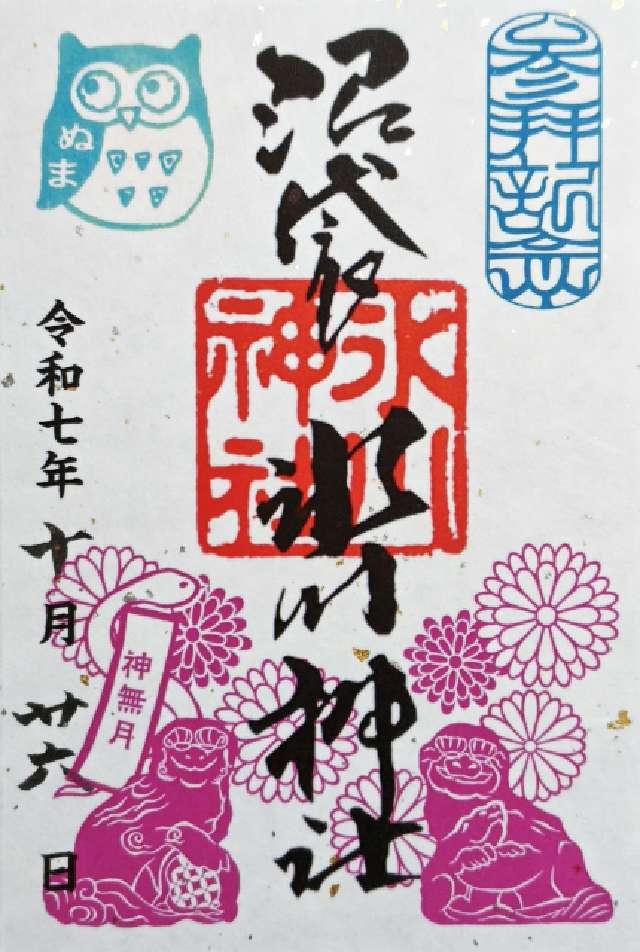 参拝記念
沼袋
氷川神社
氷川神社
ぬま
神無月
令和七年十月廿六日